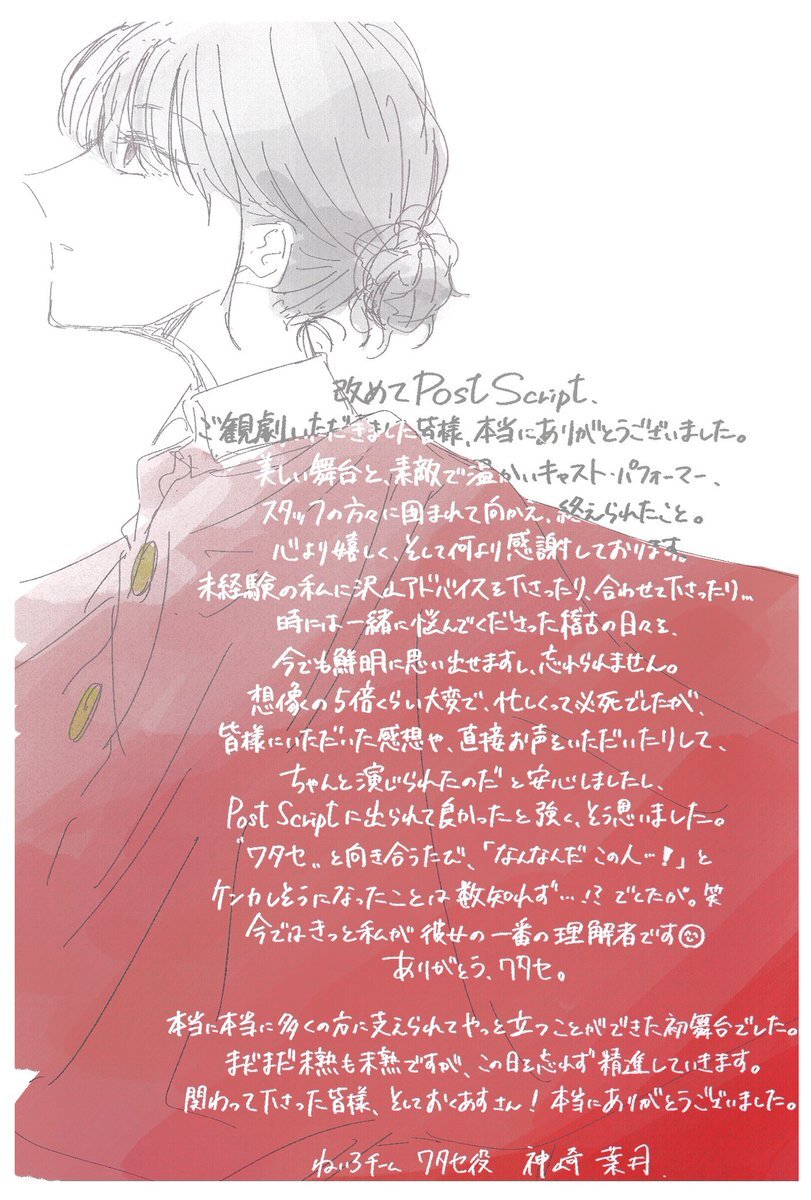 改めてPost Script、
ご観劇いただきました皆様、本当にありがとうございました。
美しい舞台と、素敵で温かいキャスト・パフォーマー、
スタッフの方々に囲まれて向かえ、終えられたこと。
心より嬉しく、そして何より感謝しております。
未経験の私に沢山アドバイスを下さったり、合わせて下さったり...
時には一緒に悩んでくださった稽古の日々を、
今でも鮮明に思い出せますし、忘れられません。
想像の5倍くらい大変で、忙しくって必死でしたが、
皆様にいただいた感想や、直接お声をいただいたりして、
ちゃんと演じられたのだと安心しましたし、
Post Scriptに出られて良かったと強く、そう思いました。
"ワタセ"と向き合うたび、「なんなんだこの人…!」と
ケンカしそうになったことは数知れず…!?でしたが。笑
今ではきっと私が彼女の一番の理解者です☺
ありがとう、ワタセ。
本当に本当に多くの方に支えられてやっと立つことができた初舞台でした。
まだまだ未熟も未熟ですが、この日を忘れず精進していきます。
関わって下さった皆様、そしておくあすさん!本当にありがとうございました。
ねいろチーム ワタセ役 神崎 葉月